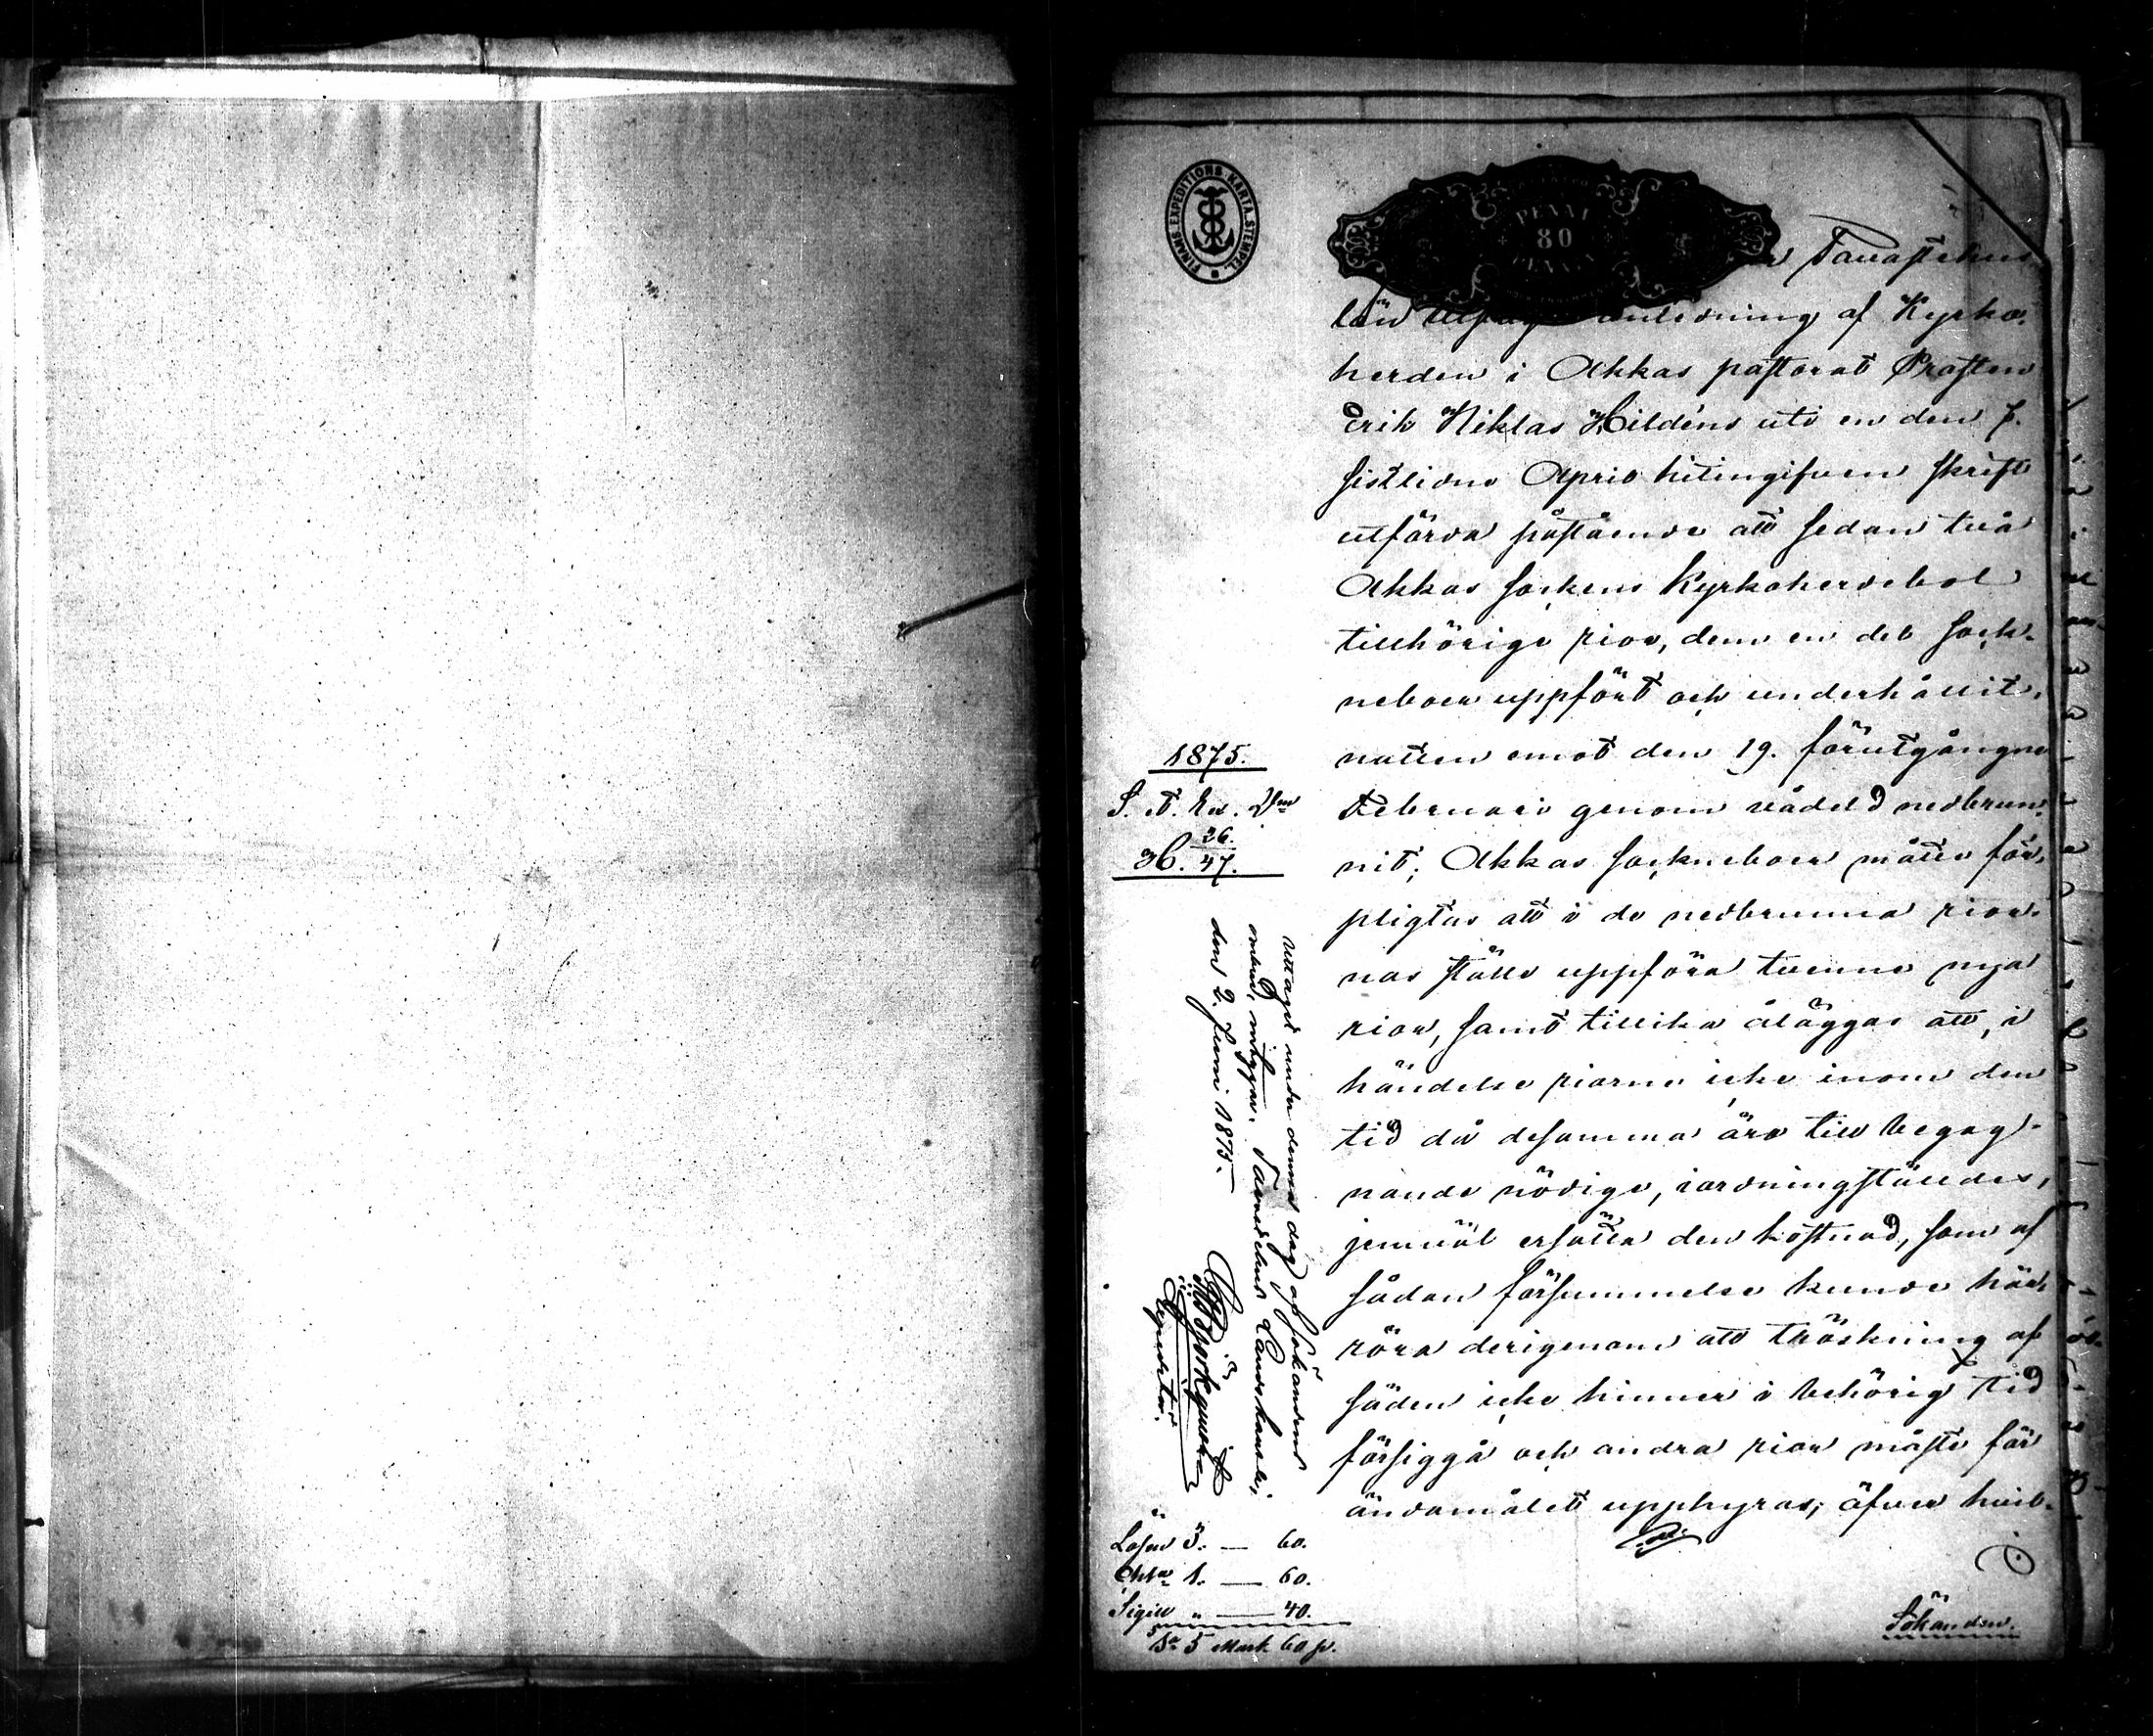 FINMS. EXPEDITIONS. KARTA. STEMPEL
PENNI
80
Tavastehus
län anledning af Kyrko-
herden i Akkas pastorat Prosten
Erik Niklas Hildéns uti en den 7.
sistlidne April hitingifven skrift
utförda påstående att sedan två
Akkas sockens Kyrkoherdebol
tillhörige rior, dem en del sock-
neboer uppfört och underhållit,
natten emot den 19. förutgångne
Februari genom vådeld nedbrun-
nit; Akkas sockneboer måtte för-
pligtas att i de nedbrunna rior-
nas ställe uppföra tvenne nya
rior, samt tillika åläggas att, i
händelse riorne icke inom den
tid då desamma äro till begag-
nande nödige, iordningställdes,
jemväl ersätta den kostnad, som af
sådan försummelse kunde här-
röra derigenom att tröskning af
säden icke hinner i behörig tid
försiggå och andra rior måste för
ändamålet upphyras; öfver hvil-
Sökanden.
1875.
S. A.
26.
H. 47.
Uttaget under denna dag af sökandens
ombud, intygar. Tavastehus Landskansli,
den 2. Juni 1875.
Lösen 3. — 60.
1. — 60.
Sigill " — 40.
Sa 5 Mark 60 p.